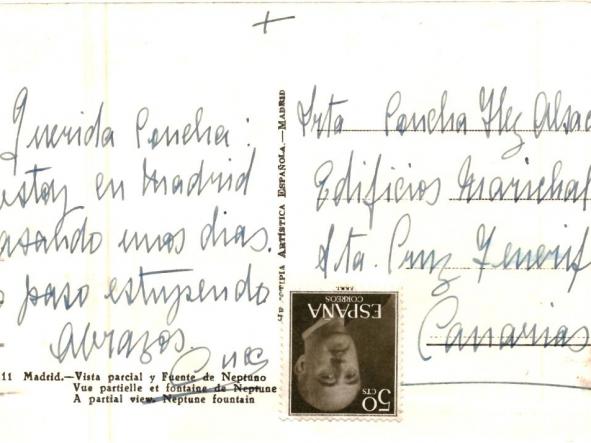 Querida Concha:
estoy en Madrid
pasando unos dias.
lo paso estupendo
abrazos
11 Madrid.—Vista parcial y Fuente de Neptuno
Vue partielle et fontaine de Neptune
A partial view. Neptune fountain
ARTÍSTICA ESPAÑOLA.—MADRID
Srta Concha Alsac
Edificios Marichal
Sta. Cruz Tenerif
Canarias
ESPAÑA
CORREOS
50 CTS